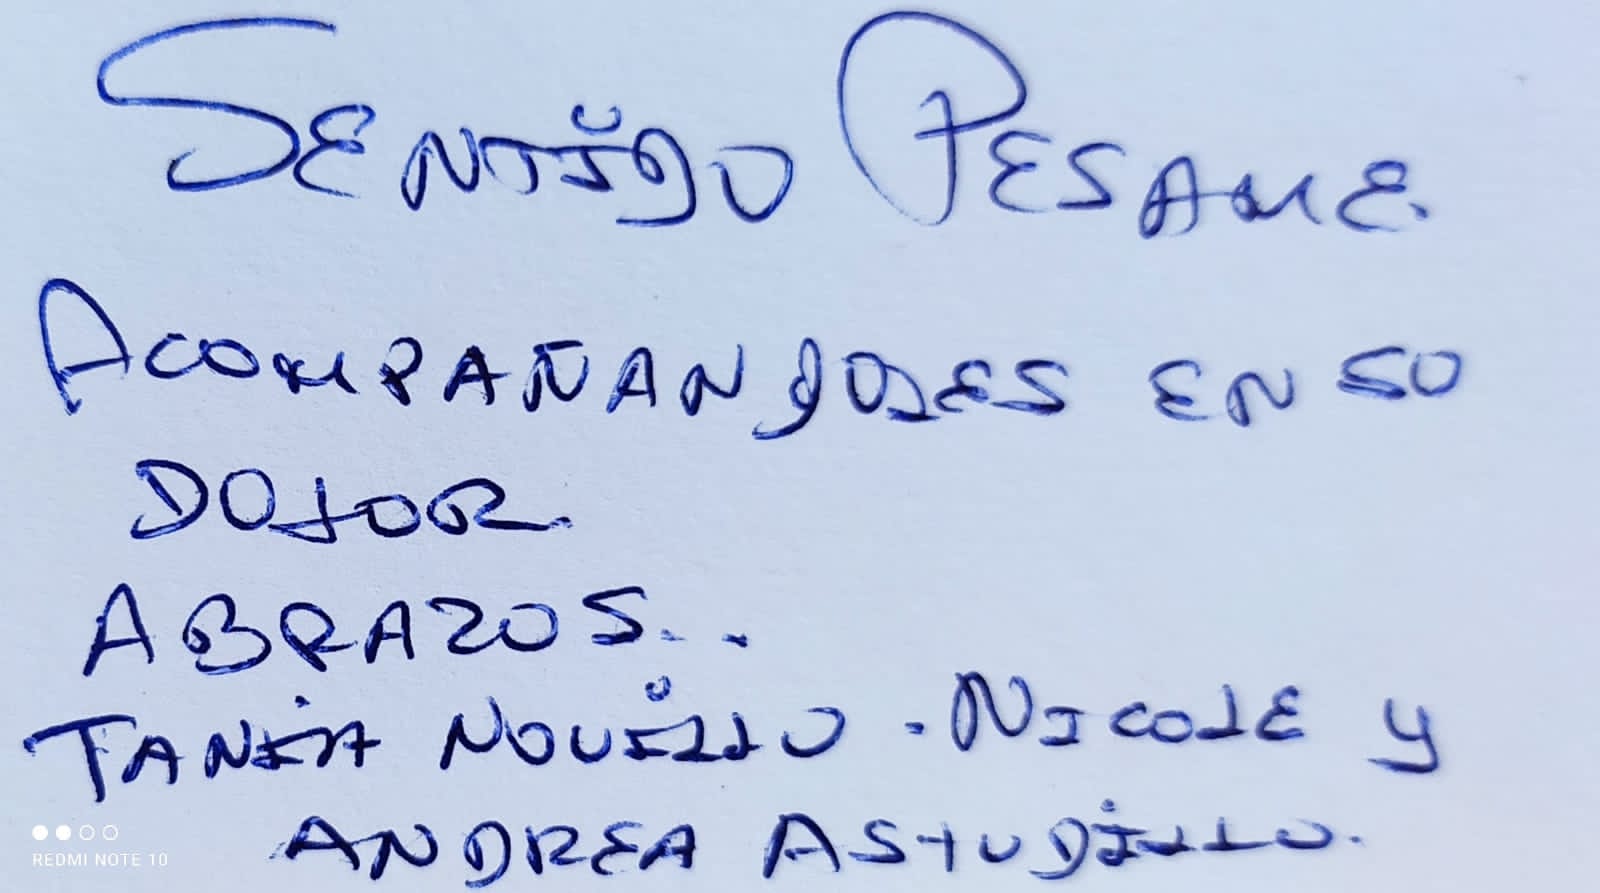 SENTIDO PESAME.
ACOMPAÑANDOLES EN SU
DOLOR.
ABRAZOS...
TANIA NOVILLO - NICOLE Y
ANDREA ASTUDILLO.
REDMI NOTE 10